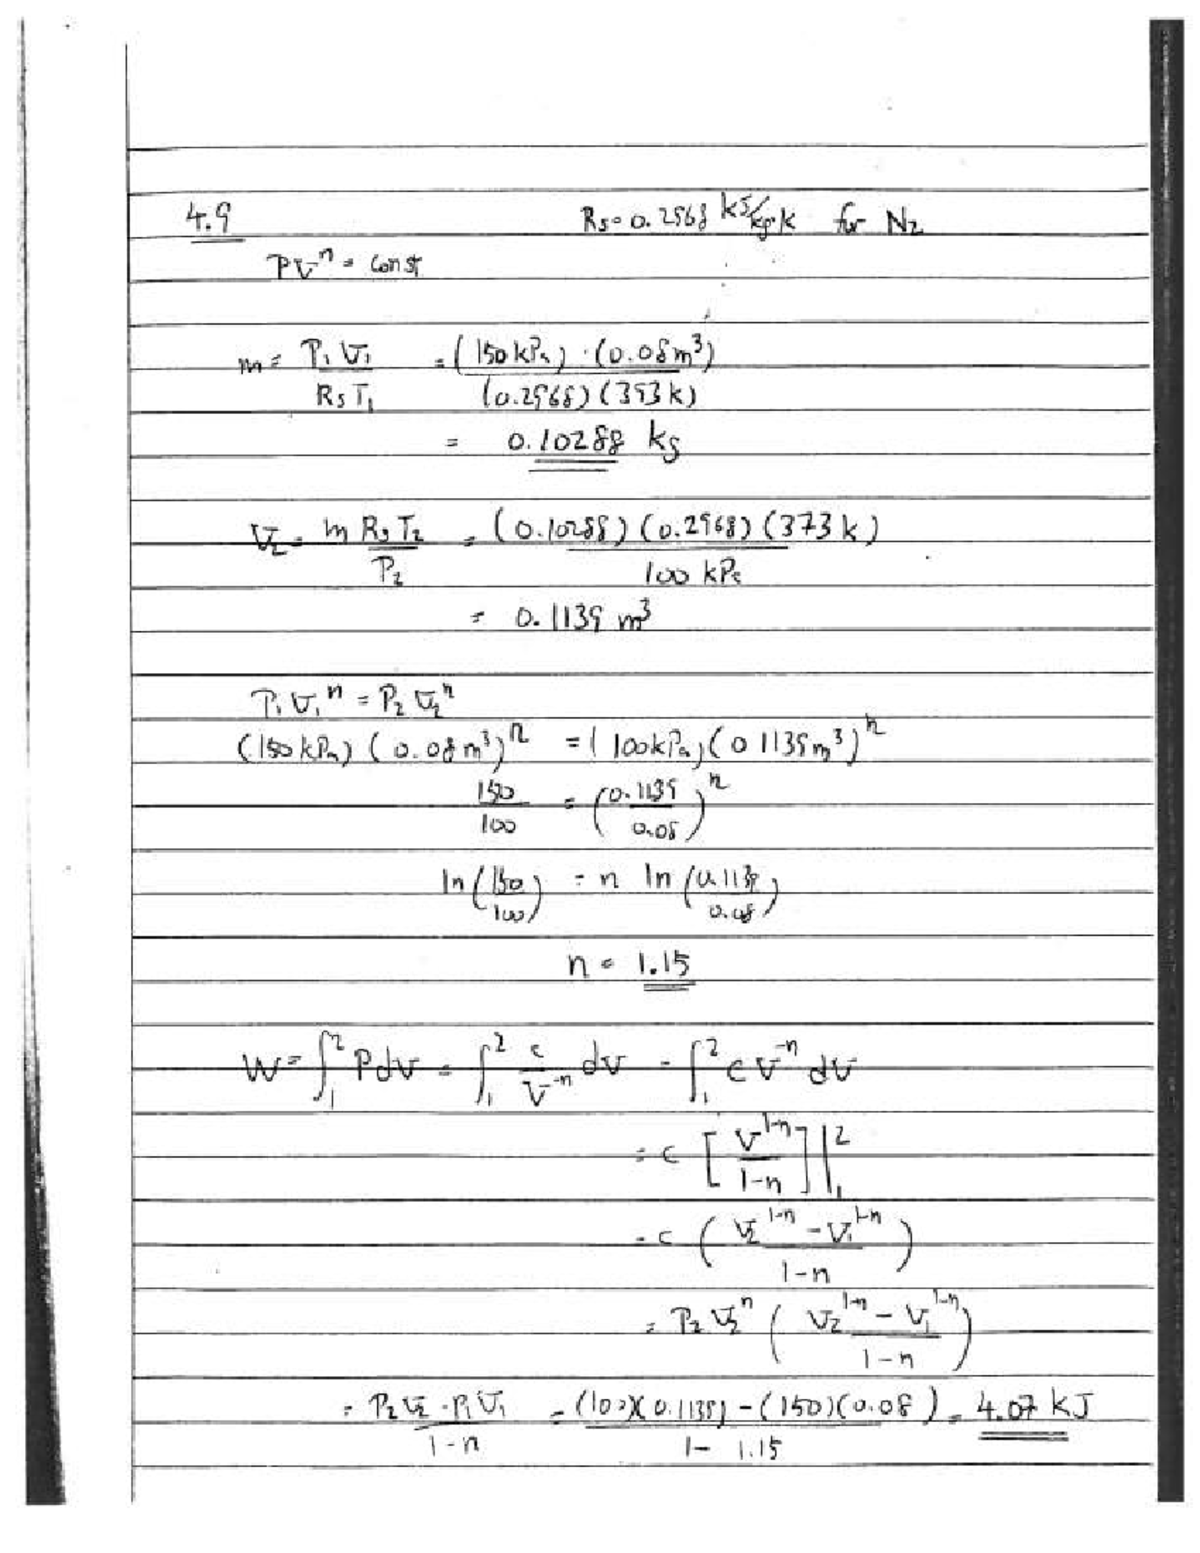 4.9 Rs=0.2968 kJ/kg·K for N2
PV^n = const
m = P1 V1 / Rs T1 = (150 kPa) · (0.08 m^3) / (0.2968) (393 K)
= 0.10288 kg
V2 = m Rs T2 / P2 = (0.10288) (0.2968) (373 K) / 100 kPa
= 0.1139 m^3
P1 V1^n = P2 V2^n
(150 kPa) (0.08 m^3)^n = (100 kPa) (0.1139 m^3)^n
150/100 = (0.1139/0.08)^n
ln(150/100) = n ln(0.1139/0.08)
n = 1.15
W = ∫1^2 P dV = ∫1^2 c/V^-n dV = ∫1^2 c V^-n dV
= c [V^1-n / 1-n] |1^2
= c (V2^1-n - V1^1-n / 1-n)
= P2 V2^n (V2^1-n - V1^1-n / 1-n)
= P2 V2 - P1 V1 / 1-n = (100)(0.1139) - (150)(0.08) / 1 - 1.15 = 4.07 kJ